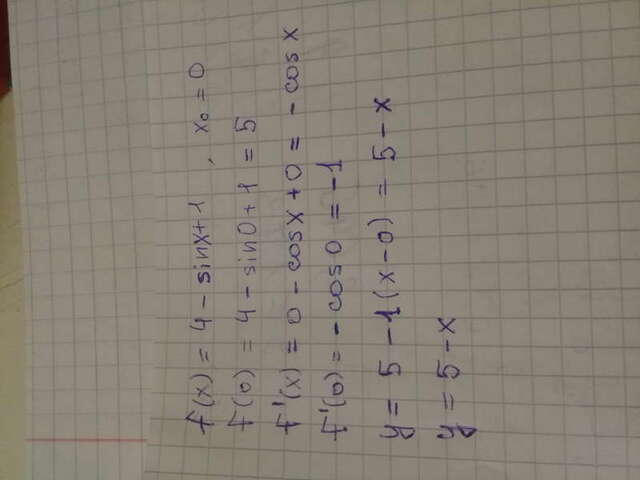 f(x) = 4 - sinx+1 , x₀ = 0
f(0) = 4 - sin0+1 = 5
f'(x) = 0 - cosx+0 = - cosx
f'(0) = - cos0 = -1
y = 5 -1(x-0) = 5-x
y = 5-x